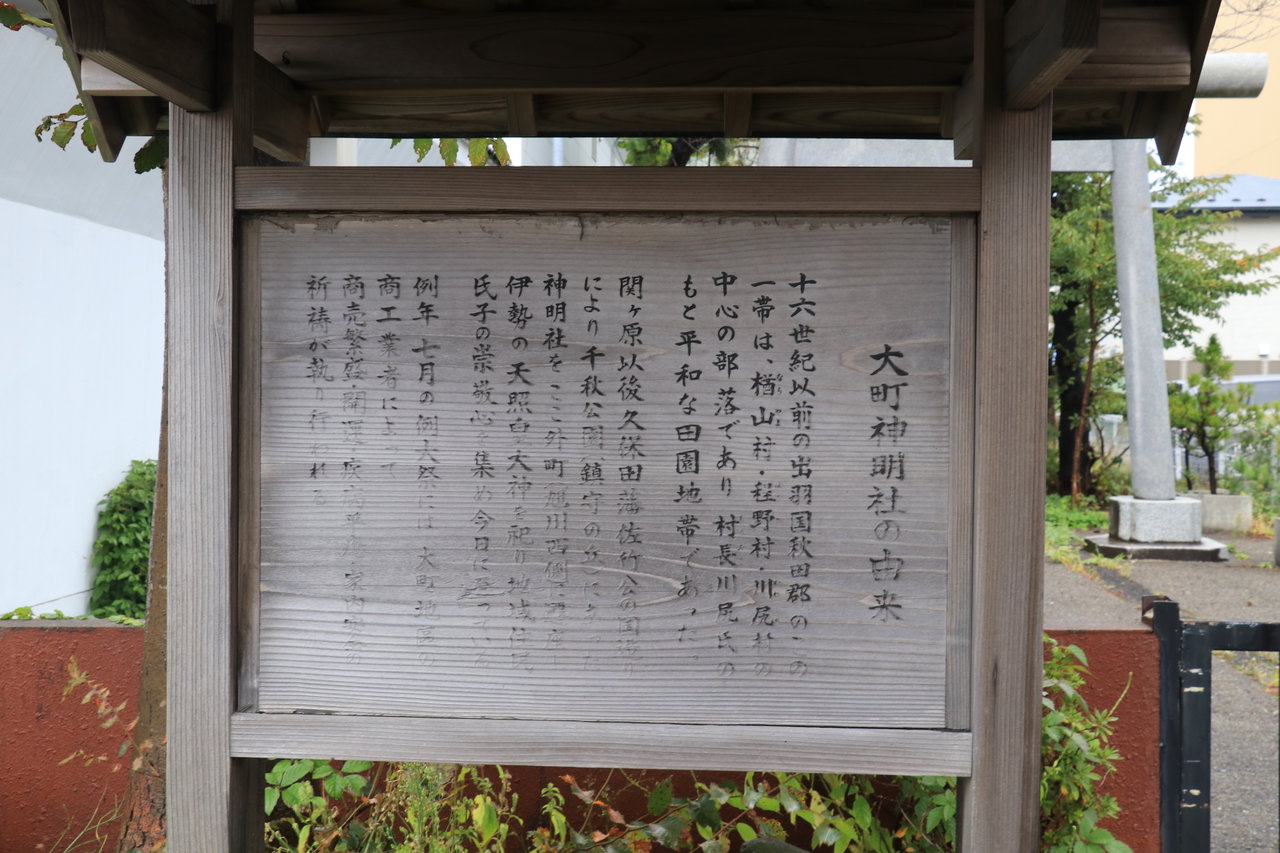 大町神明社の由来
十六世紀以前の出羽国秋田郡のこの
一帯は、楢山村・程野村・川尻村の
中心の部落であり 村長川尻氏の
もと平和な田園地帯であった。
関ヶ原以後久保田藩佐竹公の国
により千秋公園 鎮守の
神明社をここ外町 旭川西側に
伊勢の天照皇大神を祀り地域住民
氏子の崇敬心を集め今日に至っている
例年七月の例大祭には 大町地区の
商工業者によって
商売繁盛・開運・疾病平癒・家内安全
祈祷が執り行われる